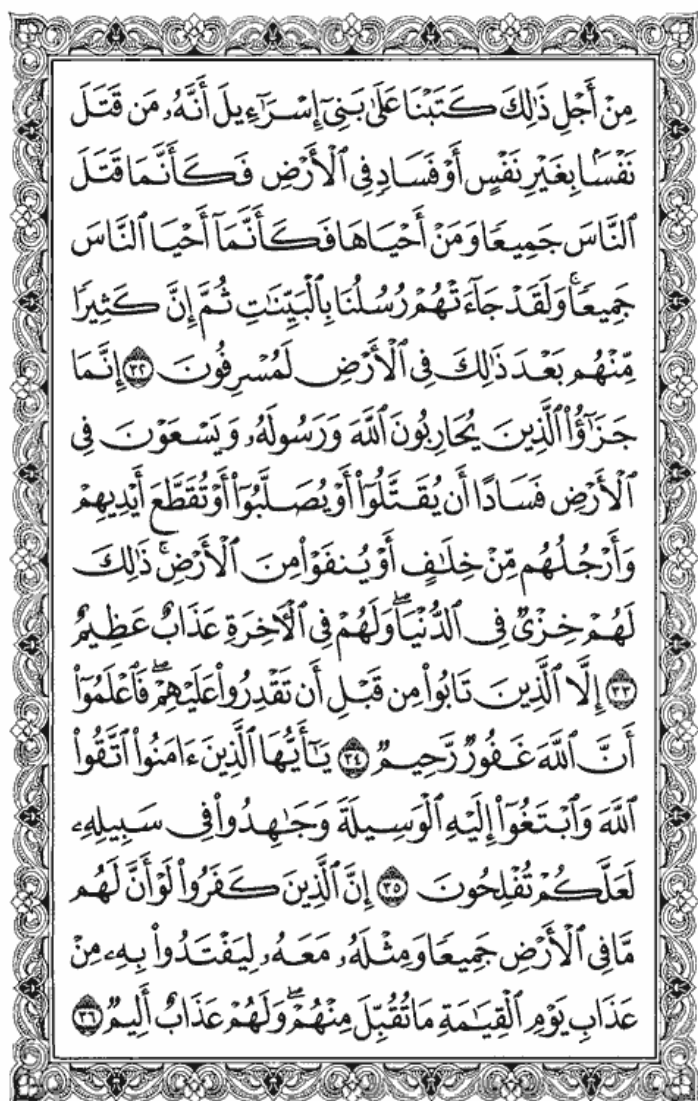 مِنْ أَجْلِ ذَٰلِكَ كَتَبْنَا عَلَىٰ بَنِيٓ إِسْرَٰٓءِيلَ أَنَّهُۥ مَن قَتَلَ
نَفْسًۢا بِغَيْرِ نَفْسٍ أَوْ فَسَادٍ فِي ٱلْأَرْضِ فَكَأَنَّمَا قَتَلَ
ٱلنَّاسَ جَمِيعًا وَمَنْ أَحْيَاهَا فَكَأَنَّمَآ أَحْيَا ٱلنَّاسَ
جَمِيعًاۚ وَلَقَدْ جَآءَتْهُمْ رُسُلُنَا بِٱلْبَيِّنَٰتِ ثُمَّ إِنَّ كَثِيرًا
مِّنْهُم بَعْدَ ذَٰلِكَ فِي ٱلْأَرْضِ لَمُسْرِفُونَ ٣٢ إِنَّمَا
جَزَٰٓؤُا۟ ٱلَّذِينَ يُحَارِبُونَ ٱللَّهَ وَرَسُولَهُۥ وَيَسْعَوْنَ فِي
ٱلْأَرْضِ فَسَادًا أَن يُقَتَّلُوٓا۟ أَوْ يُصَلَّبُوٓا۟ أَوْ تُقَطَّعَ أَيْدِيهِمْ
وَأَرْجُلُهُم مِّنْ خِلَٰفٍ أَوْ يُنفَوْا۟ مِنَ ٱلْأَرْضِۚ ذَٰلِكَ
لَهُمْ خِزْيٌ فِي ٱلدُّنْيَاۖ وَلَهُمْ فِي ٱلْءَاخِرَةِ عَذَابٌ عَظِيمٌ
٣٣ إِلَّا ٱلَّذِينَ تَابُوا۟ مِن قَبْلِ أَن تَقْدِرُوا۟ عَلَيْهِمْۖ فَٱعْلَمُوٓا۟
أَنَّ ٱللَّهَ غَفُورٌ رَّحِيمٌ ٣٤ يَٰٓأَيُّهَا ٱلَّذِينَ ءَامَنُوا۟ ٱتَّقُوا۟
ٱللَّهَ وَٱبْتَغُوٓا۟ إِلَيْهِ ٱلْوَسِيلَةَ وَجَٰهِدُوا۟ فِي سَبِيلِهِۦ
لَعَلَّكُمْ تُفْلِحُونَ ٣٥ إِنَّ ٱلَّذِينَ كَفَرُوا۟ لَوْ أَنَّ لَهُم
مَّا فِي ٱلْأَرْضِ جَمِيعًا وَمِثْلَهُۥ مَعَهُۥ لِيَفْتَدُوا۟ بِهِۦ مِنْ
عَذَابِ يَوْمِ ٱلْقِيَٰمَةِ مَا تُقُبِّلَ مِنْهُمْۖ وَلَهُمْ عَذَابٌ أَلِيمٌ ٣٦